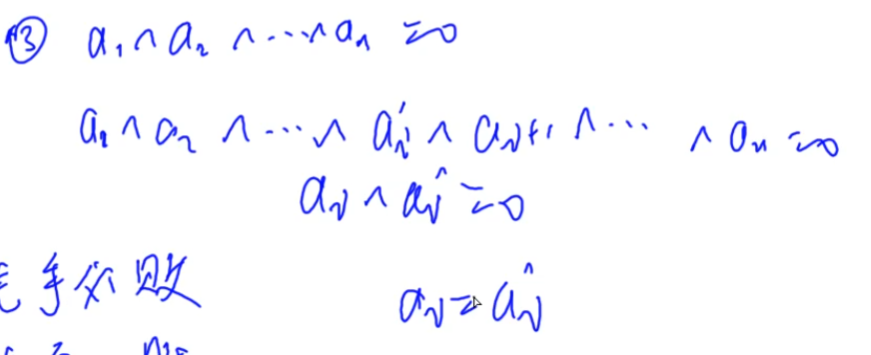 ③ a₁ ∧ a₂ ∧ ⋯ ∧ aₙ = 0
a₁ ∧ a₂ ∧ ⋯ ∧ aᵢ' ∧ aᵢ₊₁ ∧ ⋯ ∧ aₙ = 0
aᵢ ∧ aᵢ^ = 0
手必败
aᵢ = aᵢ^